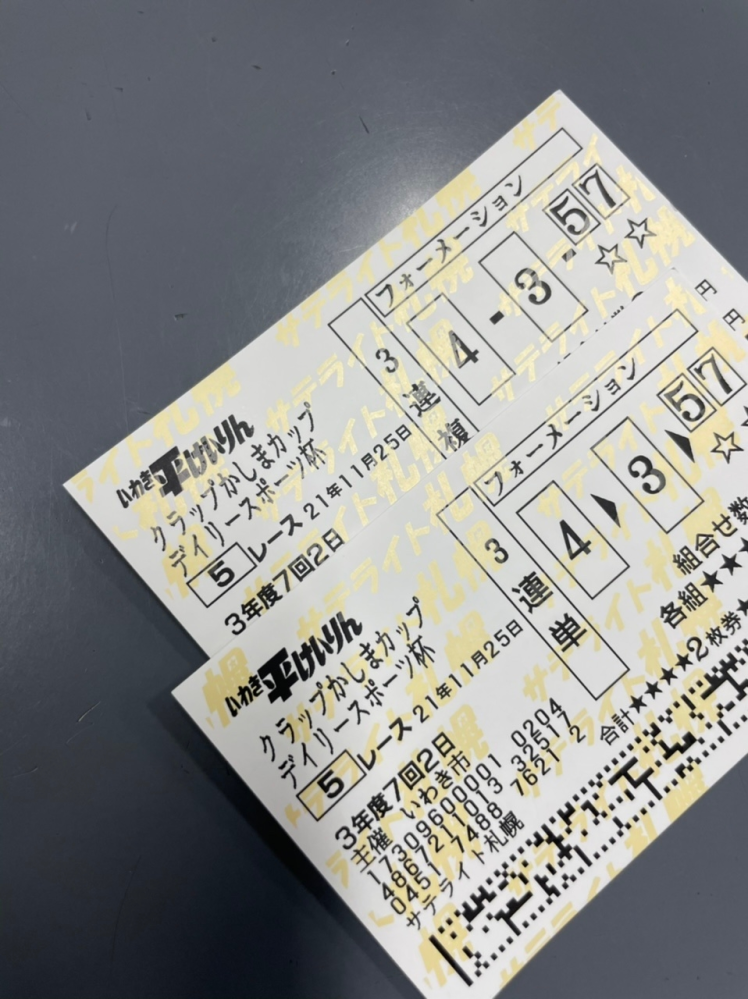 フォーメーション
3連複
4 - 3 - 57
☆☆
円
円
いわき平けいりん
クラップかしまカップ
デイリースポーツ杯
5 レース 21年11月25日
3年度7回2日
フォーメーション
3連単
4 ▶ 3 ▶ 57
☆
組合せ数
各組★★★
合計★★★★2枚券★
いわき平けいりん
クラップかしまカップ
デイリースポーツ杯
5 レース 21年11月25日
3年度7回2日
主催 いわき市
17309600001 0204
4867211013 32517
0451 7488 7621 2
サテライト札幌